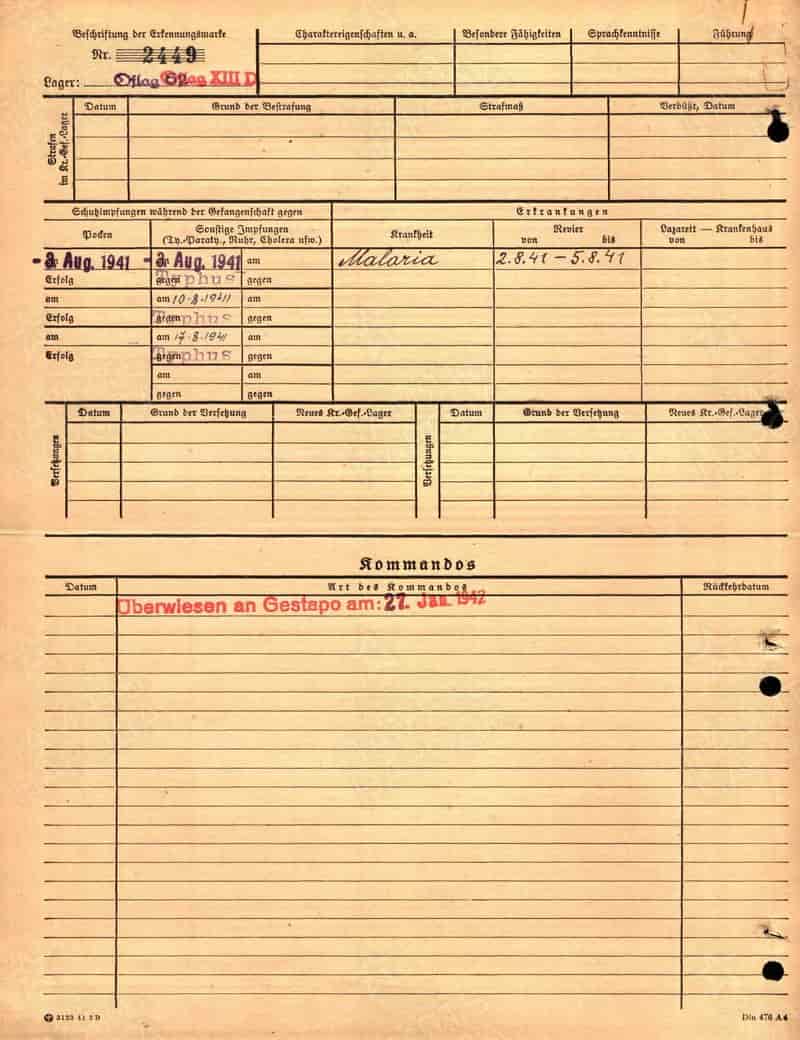 Beschriftung der Erkennungsmarke
Nr. 2449
Lager: Oflag 62 Oflag XIII D
Charaktereigenschaften u. a.
Besondere Fähigkeiten
Sprachkenntnisse
Führung
Strafen im Kr.-Gef.-Lager
Datum
Grund der Bestrafung
Strafmaß
Verbüßt, Datum
Schutzimpfungen während der Gefangenschaft gegen
Erkrankungen
Pocken
Sonstige Impfungen
(Ty.-Paraty., Ruhr, Cholera usw.)
Krankheit
Revier
von bis
Lazarett — Krankenhaus
von bis
Aug. 1941
Aug. 1941
am
Malaria
2.8.41 – 5.8.41
Erfolg
gegen Typhus
gegen
am
am 10.8.1941
am
Erfolg
gegen Typhus
gegen
am
am 17.8.1941
am
Erfolg
gegen Typhus
gegen
am
am
gegen
gegen
Versetzungen
Datum
Grund der Versetzung
Neues Kr.-Gef.-Lager
Versetzungen
Datum
Grund der Versetzung
Neues Kr.-Gef.-Lager
Kommandos
Datum
Art des Kommandos
Rückkehrdatum
Überwiesen an Gestapo am: 27. Jan. 1942
Din 476 A4